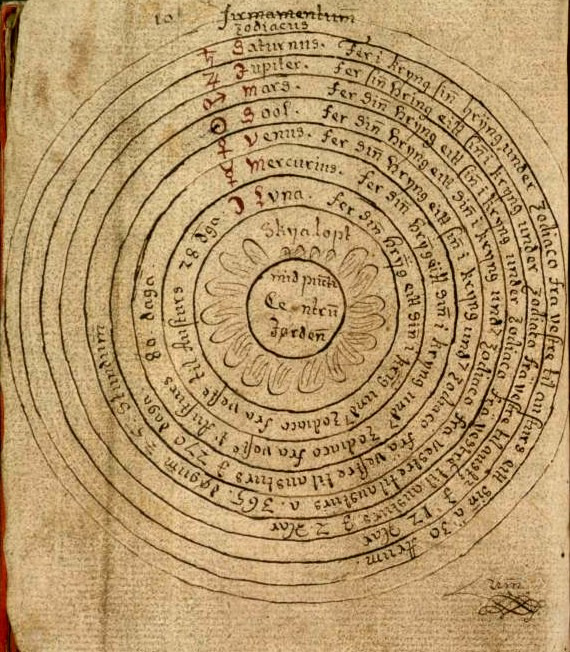 firmamentum
zodiacus
♄ Saturnus. Fer i kryng sin hryng under Zodiaco fra vestre til austurs eitt sin a 30 Arum.
♃ Jupiter. fer sin hring eitt sin i kryng under Zodiaco fra vestre til austurs 12 Aar
♂ Mars. fer sin hryng eitt sin i kryng under Zodiaco fra vestre til austurs 2 Aar
☉ Sool. fer sin hryng eitt sin i kryng und Zodiaco fra vestre til austurs a. 365. dögum 25. Stundum
♀ Venus. fer sin hryng eitt sin i kryng und Zodiaco fra vestre til austurs 270 daga
☿ Mercurius. fer sin hryg eitt sin i kryng und Zodiaco fra veste til Austurs 80 daga
☽ Luna. fer sin hryg eitt sin i krig und Zodiaco fra veste til Austurs 28 dga.
Skyalopt
mid pucte
Centru
Jorden